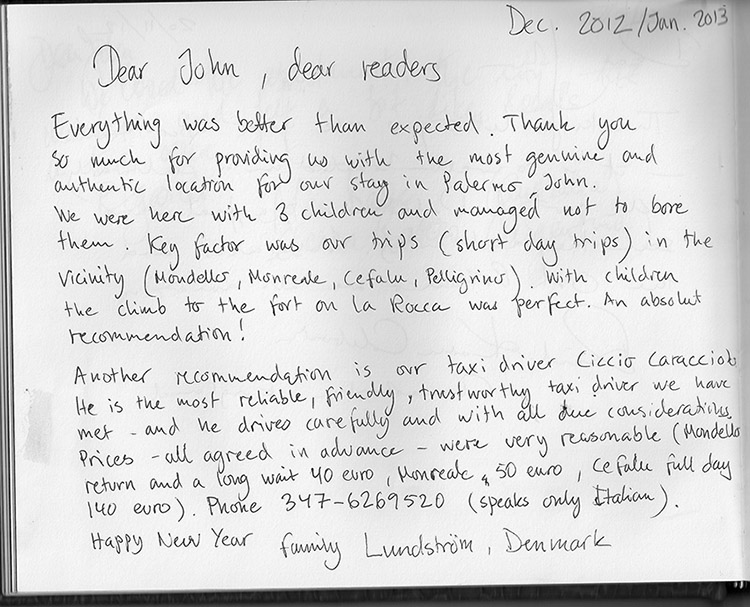 Dec. 2012/Jan. 2013
Dear John, dear readers
Everything was better than expected. Thank you
so much for providing us with the most genuine and
authentic location for our stay in Palermo, John.
We were here with 3 children and managed not to bore
them. Key factor was our trips (short day trips) in the
vicinity (Mondello, Monreale, Cefalu, Pelligrino). With children
the climb to the fort on la Rocca was perfect. An absolut
recommendation!
Another recommendation is our taxi driver Ciccio Caracciolo
He is the most reliable, friendly, trustworthy taxi driver we have
met - and he drives carefully and with all due considerations.
Prices - all agreed in advance - were very reasonable (Mondello
return and a long wait 40 euro, Monreale 50 euro, Cefalu full day
140 euro). Phone 347-6269520 (speaks only Italian).
Happy New Year family Lundström, Denmark